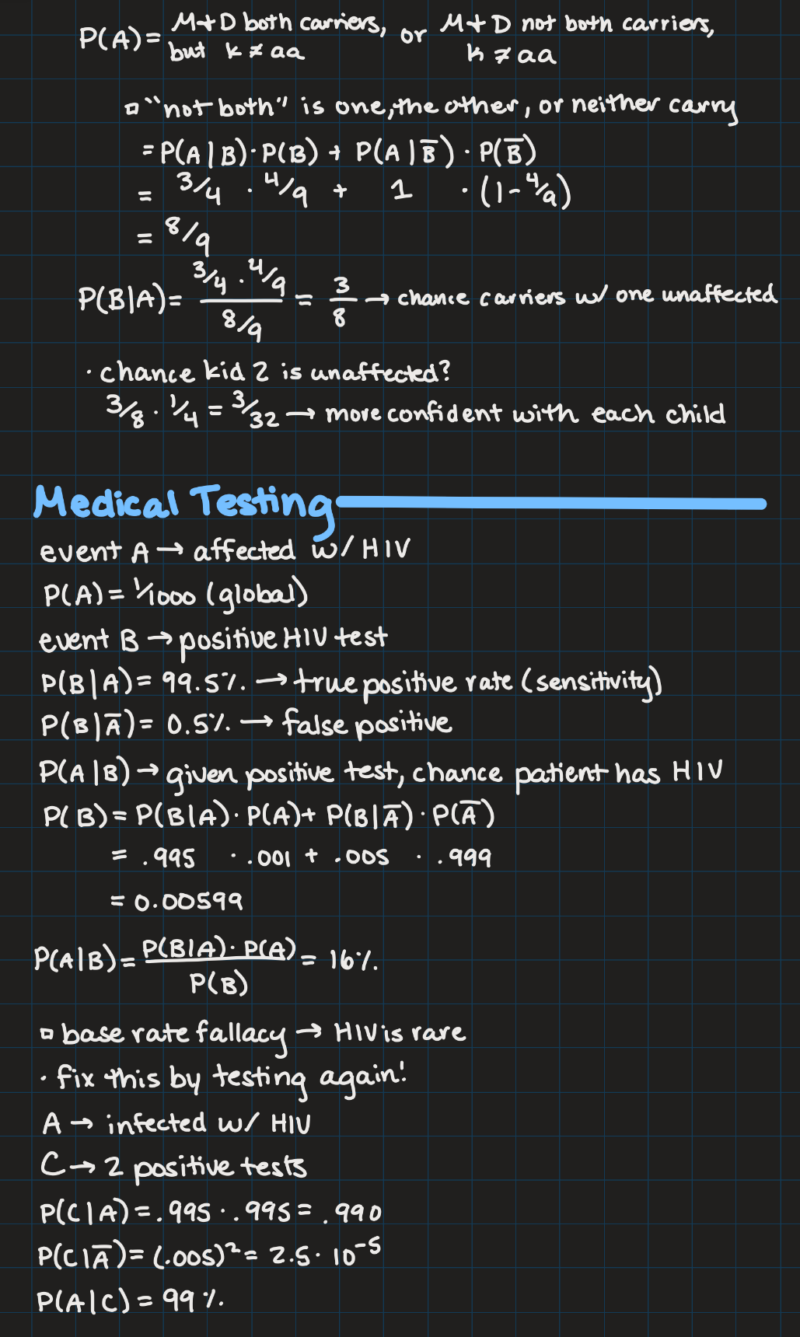 P(A) = M+D both carriers, but k ≠ aa or M+D not both carriers, k ≠ aa
▫ "not both" is one, the other, or neither carry
= P(A|B)·P(B) + P(A|B̅)·P(B̅)
= 3/4 · 4/9 + 1 · (1-4/9)
= 8/9
P(B|A) = (3/4 · 4/9)/(8/9) = 3/8 → chance carriers w/ one unaffected
· chance kid 2 is unaffected?
3/8 · 1/4 = 3/32 → more confident with each child
Medical Testing
event A → affected w/ HIV
P(A) = 1/1000 (global)
event B → positive HIV test
P(B|A) = 99.5% → true positive rate (sensitivity)
P(B|A̅) = 0.5% → false positive
P(A|B) → given positive test, chance patient has HIV
P(B) = P(B|A)·P(A) + P(B|A̅)·P(A̅)
= .995 · .001 + .005 · .999
= 0.00599
P(A|B) = P(B|A)·P(A)/P(B) = 16%.
▫ base rate fallacy → HIV is rare
· fix this by testing again!
A → infected w/ HIV
C → 2 positive tests
P(C|A) = .995 · .995 = .990
P(C|A̅) = (.005)² = 2.5 · 10⁻⁵
P(A|C) = 99%.